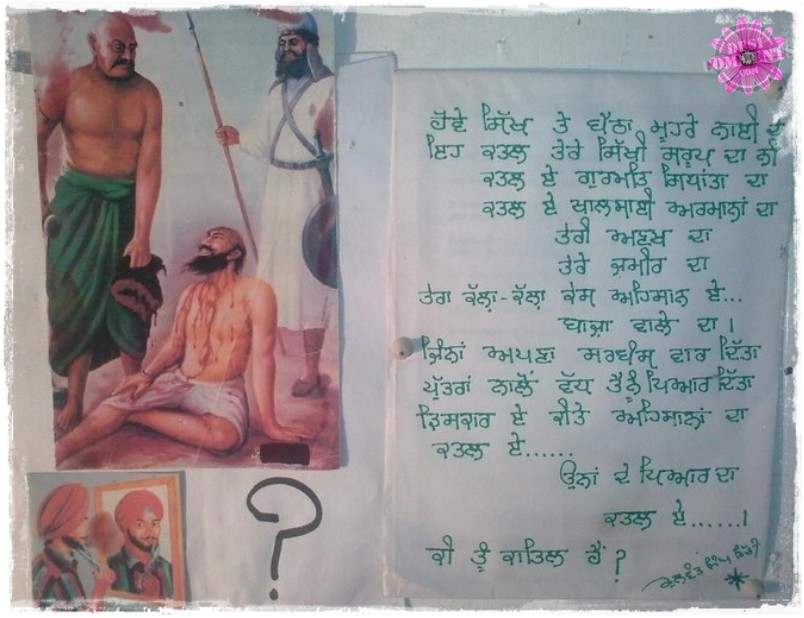 DESI COMMENT .COM
ਹੋਵੇ ਸਿੱਖ ਤੇ ਬੈਠਾ ਮੂਹਰੇ ਨਾਈ ਦੇ
ਇਹ ਕਤਲ ਤੇਰੇ ਸਿੱਖੀ ਸਰੂਪ ਦਾ ਨੀ
ਕਤਲ ਏ ਗੁਰਮਤਿ ਸਿਧਾਂਤਾ ਦਾ
ਕਤਲ ਏ ਖਾਲਸਾਈ ਅਰਮਾਨਾਂ ਦਾ
ਤੇਰੀ ਅਣਖ ਦਾ
ਤੇਰੇ ਜ਼ਮੀਰ ਦਾ
ਤੇਰਾ ਕੱਲਾ-ਕੱਲਾ ਕੇਸ ਅਹਿਸਾਨ ਏ...
ਬਾਜਾਂ ਵਾਲੇ ਦਾ।
ਜਿੰਨਾਂ ਅਪਣਾ ਸਰਬੰਸ ਵਾਰ ਦਿੱਤਾ
ਪੁੱਤਰਾਂ ਨਾਲੋਂ ਵੱਧ ਤੈਨੂੰ ਪਿਆਰ ਦਿੱਤਾ
ਤ੍ਰਿਸਕਾਰ ਏ ਕੀਤੇ ਅਹਿਸਾਨਾਂ ਦਾ
ਕਤਲ ਏ......
ਉਨਾਂ ਦੇ ਪਿਆਰ ਦਾ
ਕਤਲ ਏ......।
ਕੀ ਤੂੰ ਕਾਤਿਲ ਹੈਂ?
?